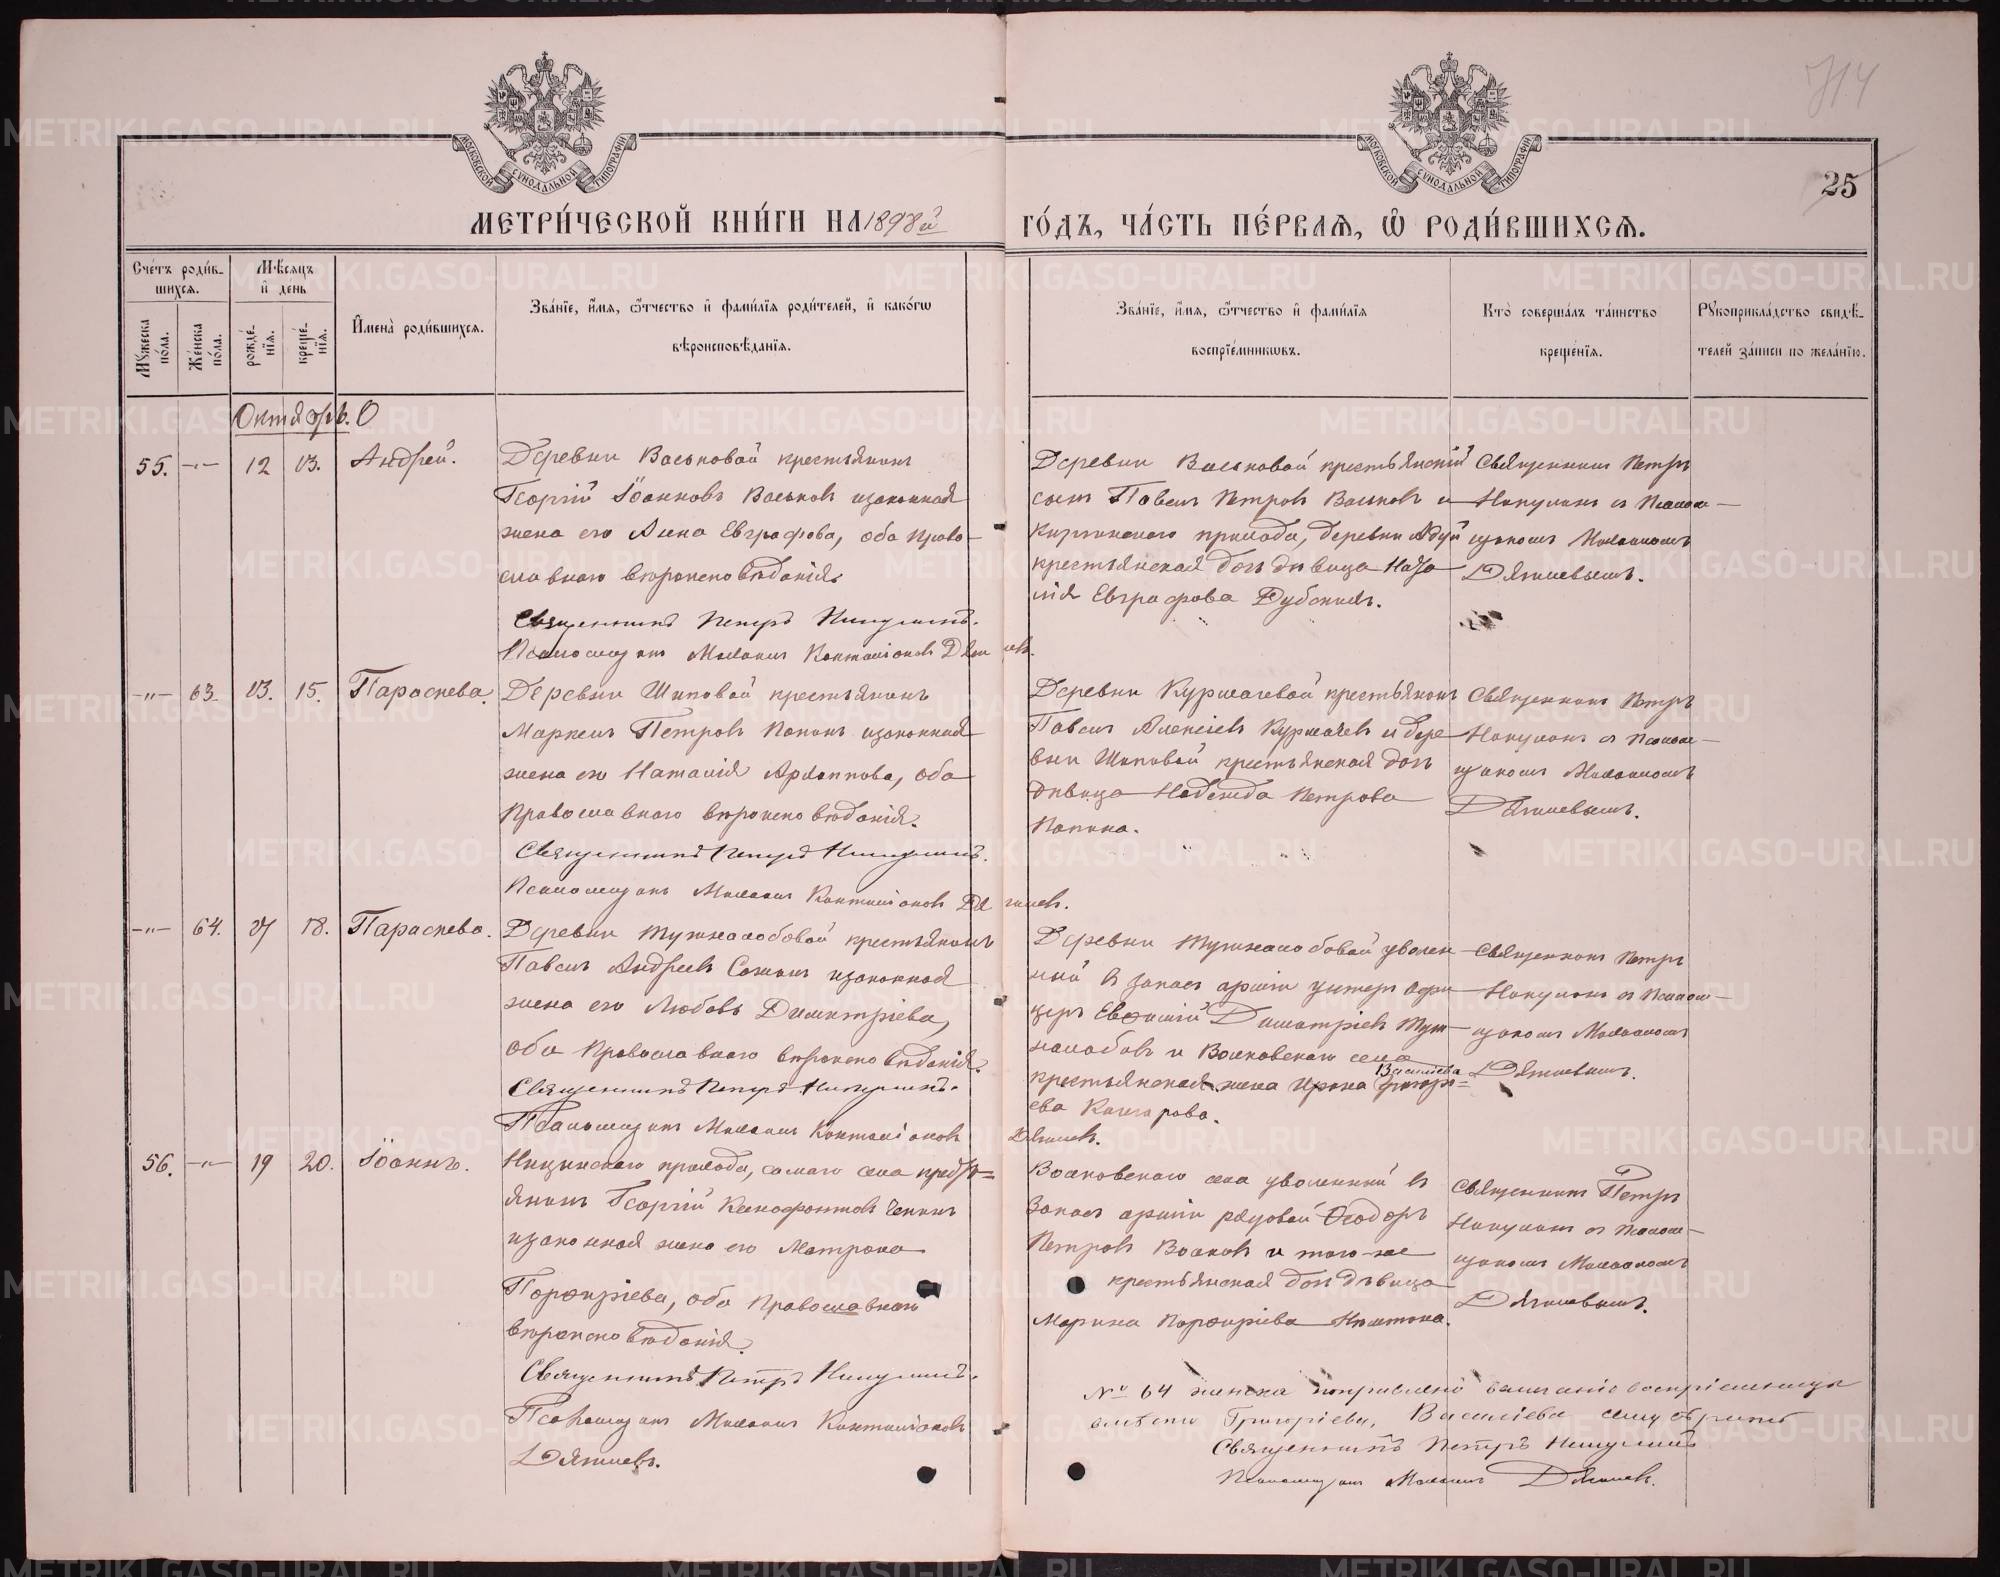 МОСКОВСКОЙ СѴНОДАЛЬНОЙ ТИПОГРАФИИ
МОСКОВСКОЙ СѴНОДАЛЬНОЙ ТИПОГРАФИИ
714
25
МЕТРИ́ЧЕСКОЙ КНИ́ГИ НА 1898й ГО́ДЪ, ЧА́СТЬ ПЕ́РВАЯ, Ѡ҆ РОДИ́ВШИХСЯ.
Сче́тъ роди́в-
шихся.
Мꙋжеска по́ла.
Же́нска по́ла.
Мѣ́сяцъ
и҆ де́нь
рожде́-
нїя.
креще́-
нїя.
И҆мена̀ роди́вшихся.
Зва́нїе, и҆́мя, ѻ҆́тчество и҆ фами́лїя роди́телей, и҆ како́гѡ
вѣроисповѣ́данїя.
Зва́нїе, и҆́мя, ѻ҆́тчество и҆ фами́лїя
воспрїе́мникѡвъ.
Кто̀ соверша́лъ та́инство
креще́нїя.
Рꙋкоприкла́дство свидѣ́-
телей за́писи по жела́нїю.
Октябрь.
55. -"- 12 13. Андрей.
Деревни Васьковой крестьянинъ
Георгій Іоанновъ Васьковъ и законная
жена его Анна Евграфова, оба право-
славнаго вѣроисповѣданія.
Священникъ Петръ Никулинъ.
Псаломщикъ Михаилъ
Деревни Васьковой крестьянскій
сынъ Павелъ Петровъ Васьковъ и
прихода, деревни
крестьянская дочь дѣвица Ната
лія Евграфова
Священникъ Петръ
Никулинъ съ Псалом-
щикомъ Михаиломъ
Дягилевымъ.
-"- 63. 13. 15. Параскева.
Деревни Шиповой крестьянинъ
Маркелъ Петровъ Папинъ и законная
жена его Наталія Архиппова, оба
Православнаго вѣроисповѣданія.
Священникъ Петръ Никулинъ.
Псаломщикъ Михаилъ Дягилевъ.
Деревни Курмачевой крестьянинъ
Павелъ Алексѣевъ Курмачевъ и дере
вни Шиповой крестьянская дочь
дѣвица Надежда Петрова
Папина.
Священникъ Петръ
Никулинъ съ Псалом-
щикомъ Михаиломъ
Дягилевымъ.
-"- 64. 17 18. Параскева.
Деревни Тушналобовой крестьянинъ
Павелъ Андреевъ и законная
жена его Любовь Димитріева,
оба Православнаго вѣроисповѣданія.
Священникъ Петръ Никулинъ.
Псаломщикъ Михаилъ Дягилевъ.
Деревни уволен
ный въ запасъ арміи унтеръ офи
церъ Евѳимій Димитріевъ
и Волковскаго села
Васильева
крестьянская жена Ирина Григорі=
ева
Священникъ Петръ
Никулинъ съ Псалом-
щикомъ Михаиломъ
Дягилевымъ.
56. -"- 19 20. Іоаннъ.
Ницинскаго прихода, самаго села кресть=
янинъ Георгій Ксенофонтовъ
и законная жена его Матрона
Порфиріева, оба Православнаго
вѣроисповѣданія.
Священникъ Петръ Никулинъ.
Псаломщикъ Михаилъ
Дягилевъ.
Волковскаго села уволенный въ
запасъ арміи рядовой Ѳеодоръ
Петровъ Волковъ и того-же
крестьянская дочь дѣвица
Марина Порфиріева
Священникъ Петръ
Никулинъ съ Псалом-
щикомъ Михаиломъ
Дягилевымъ.
№ 64 женска поправлено воспріемницы
вмѣсто Григоріева, Васильева
Священникъ Петръ Никулинъ
Псаломщикъ Михаилъ Дягилевъ.
METRIKI.GASO-URAL.RU